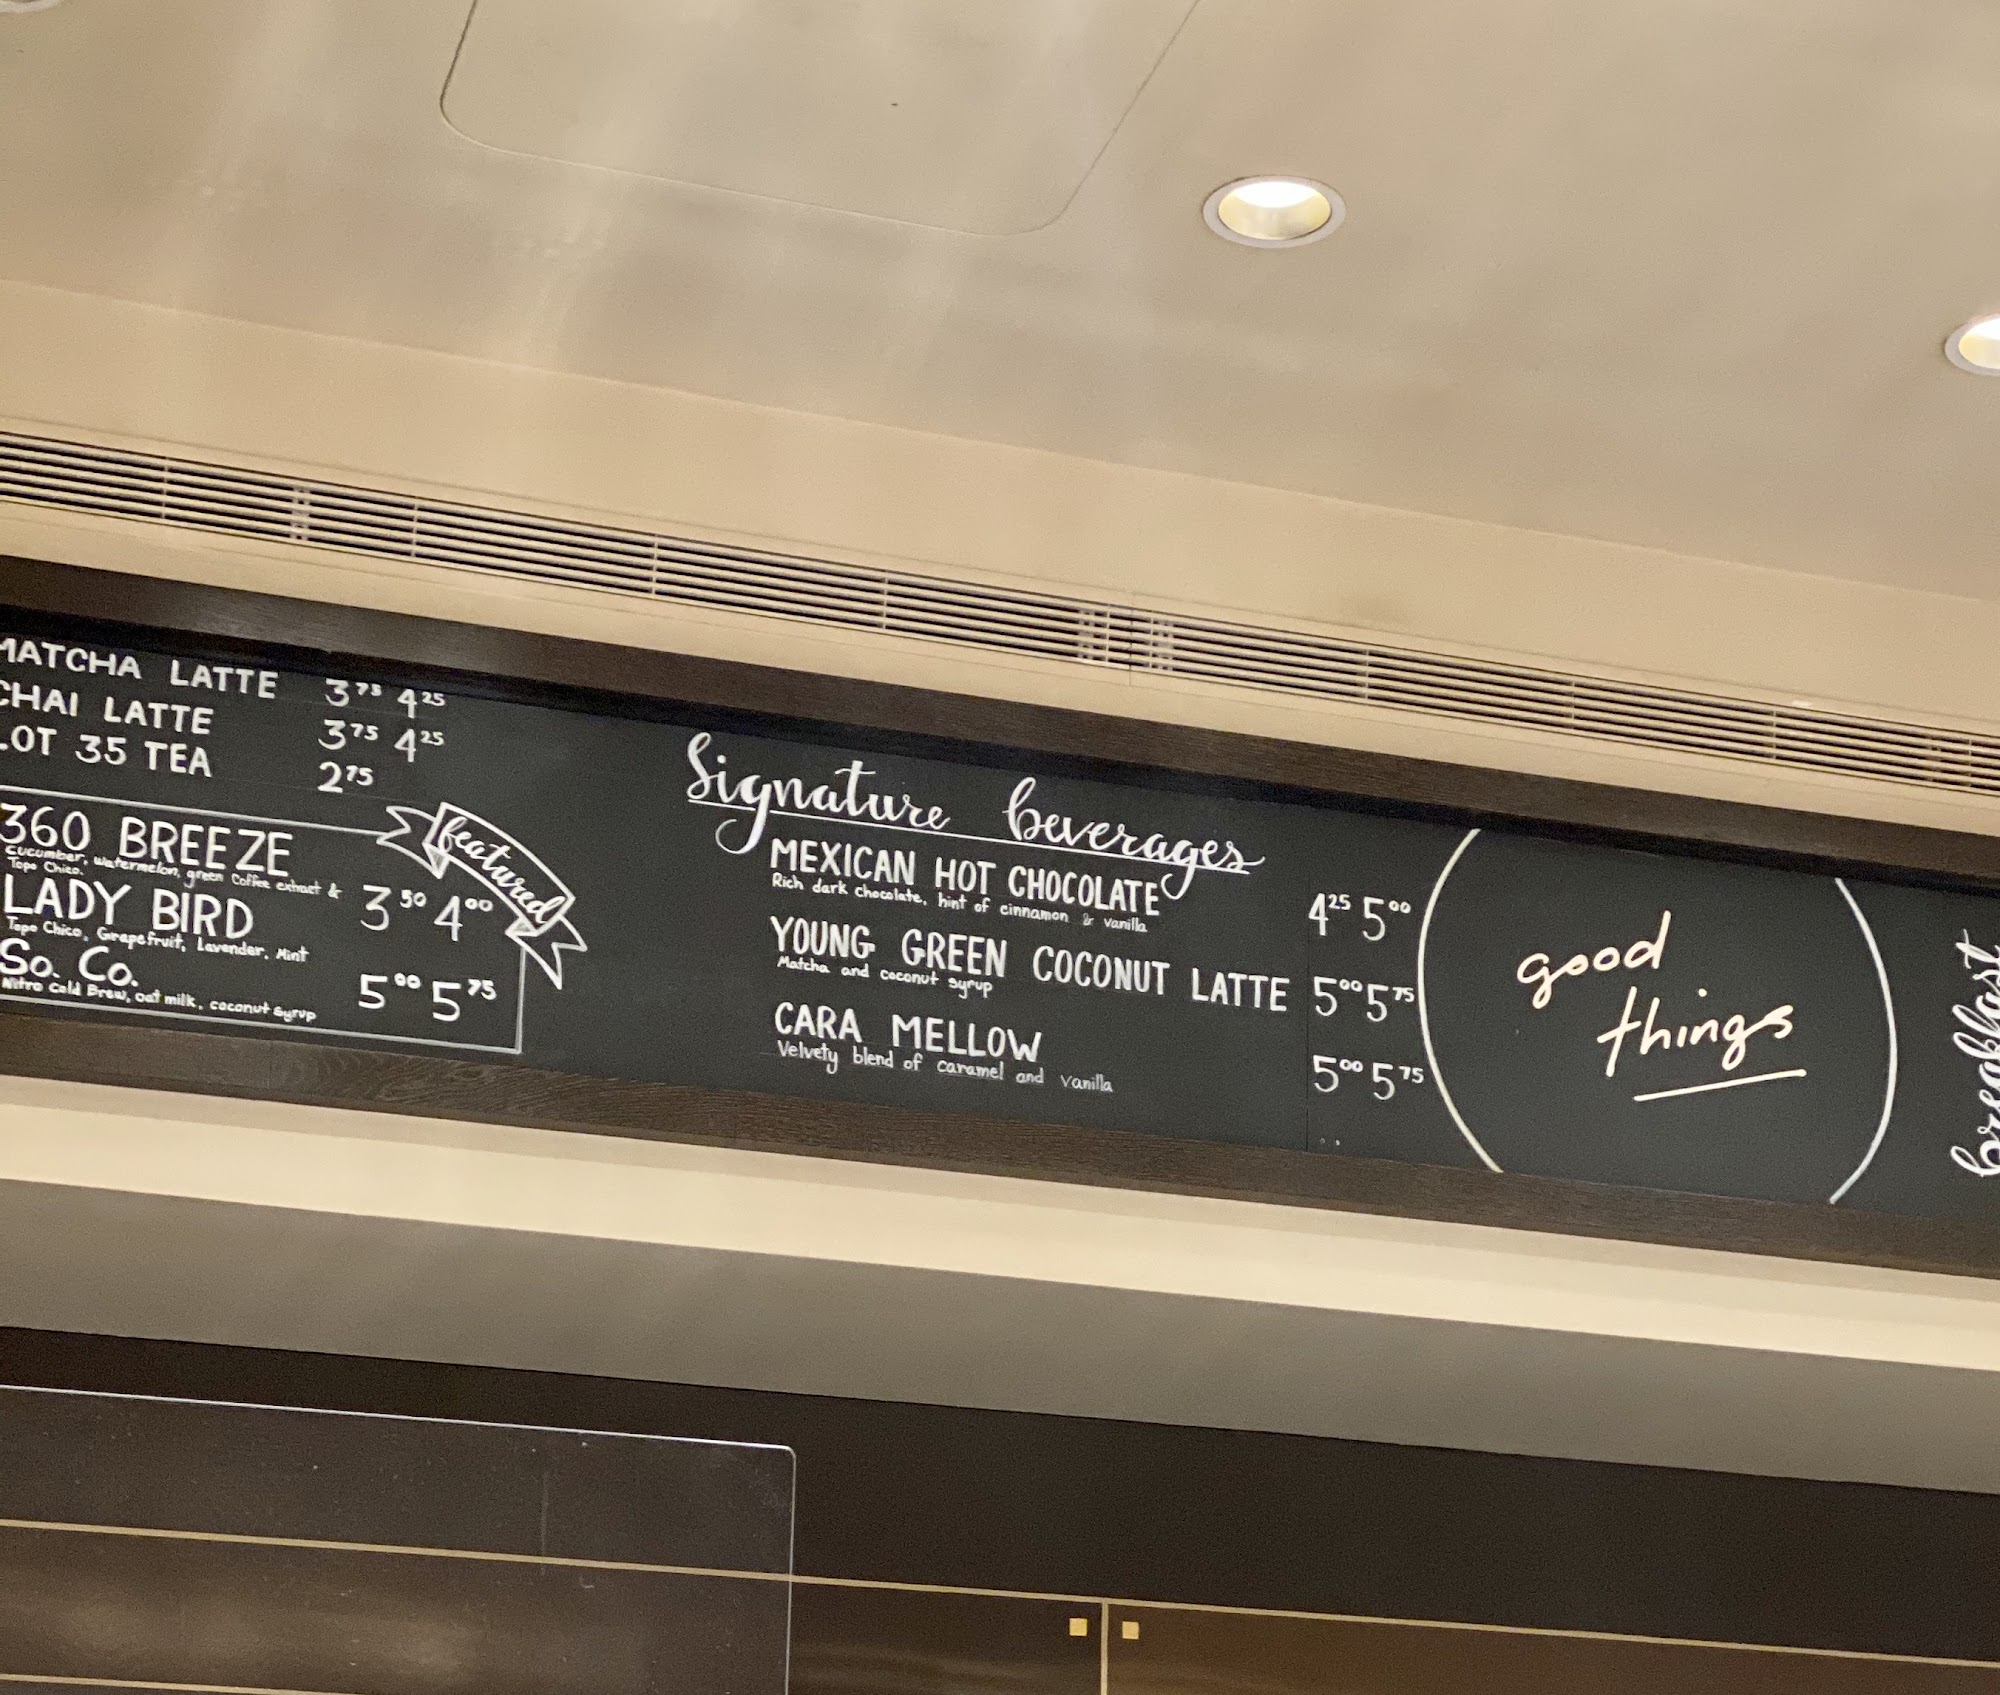 MATCHA LATTE 3 75 4 25
CHAI LATTE 3 75 4 25
LOT 35 TEA 2 75
featured
360 BREEZE
Cucumber, watermelon, green Coffee extract &
Topo Chico.
3 50 4 00
LADY BIRD
Topo Chico, Grapefruit, Lavender, Mint
So. Co. 5 00 5 75
Nitro Cold Brew, oat milk, coconut syrup
Signature beverages
MEXICAN HOT CHOCOLATE 4 25 5 00
Rich dark chocolate, hint of cinnamon & vanilla
YOUNG GREEN COCONUT LATTE 5 00 5 75
Matcha and coconut syrup
CARA MELLOW 5 00 5 75
Velvety blend of caramel and vanilla
good
things
breakfast